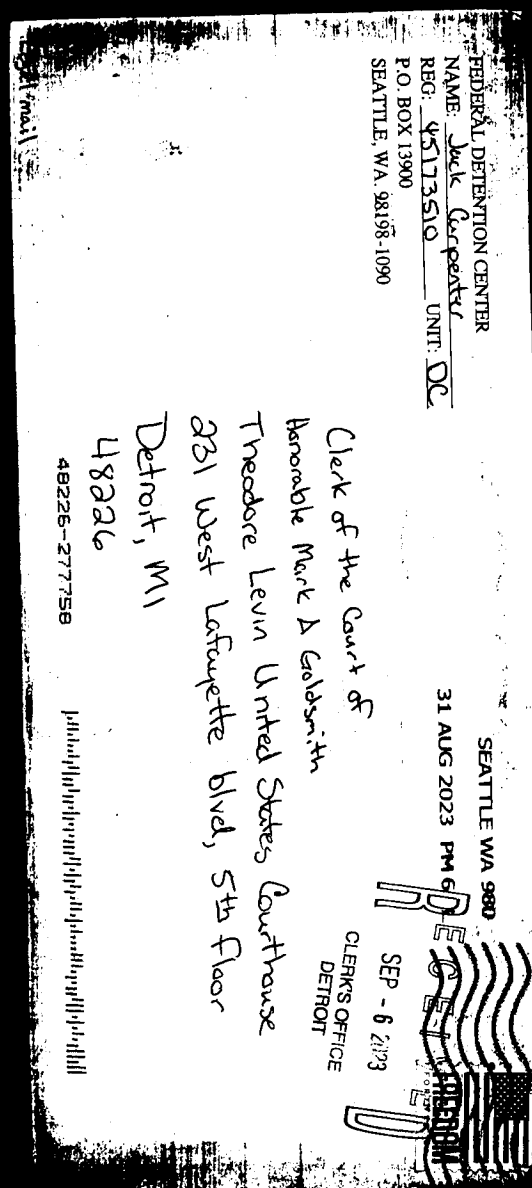 FEDERAL DETENTION CENTER
NAME: Jack Carpenter
REG: 45173510 UNIT: DC
P.O. BOX 13900
SEATTLE, WA. 98198-1090
SEATTLE WA 980
31 AUG 2023 PM 6
RECEIVED
SEP - 6 2023
CLERK'S OFFICE
DETROIT
FREEDOM
Clerk of the Court of
Honorable Mark A Goldsmith
Theodore Levin United States Courthouse
231 West Lafayette blvd, 5th floor
Detroit, MI
48226
48226-277758
Legal mail